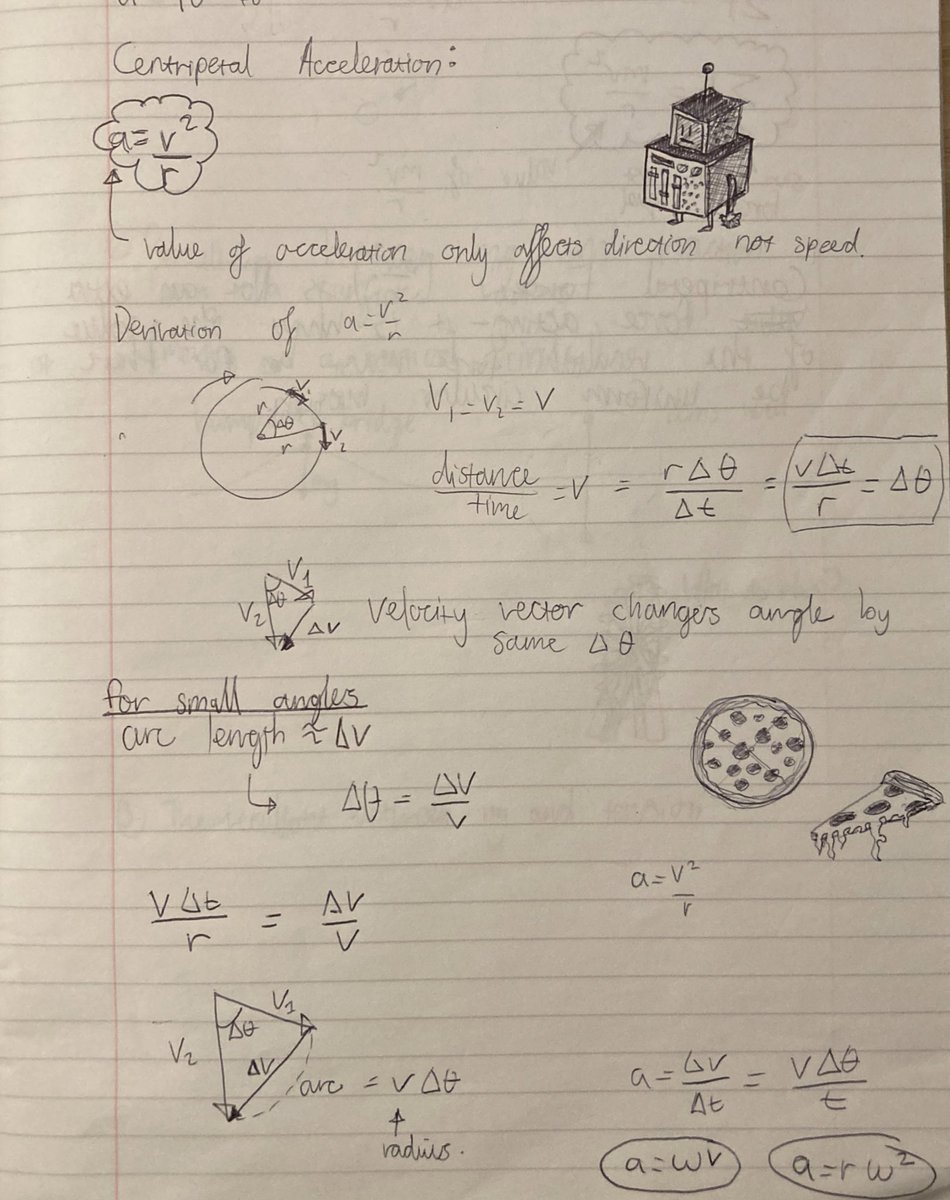 Centripetal Acceleration:
a = v²/r
value of acceleration only affects direction not speed.
Derivation of a = v²/r
r Δθ r V₂
V₁ = V₂ = V
distance/time = V = rΔθ/Δt = vΔt/r = Δθ
V₁
V₂ Δθ
ΔV
Velocity vector changers angle by
same Δθ
for small angles
arc length ≈ ΔV
↳ Δθ = ΔV/V
a = v²/r
VΔt/r = ΔV/V
V₁
Δθ
V₂
ΔV
arc = VΔθ
↑
radius.
a = ΔV/Δt = VΔθ/t
a = ωv
a = rω²